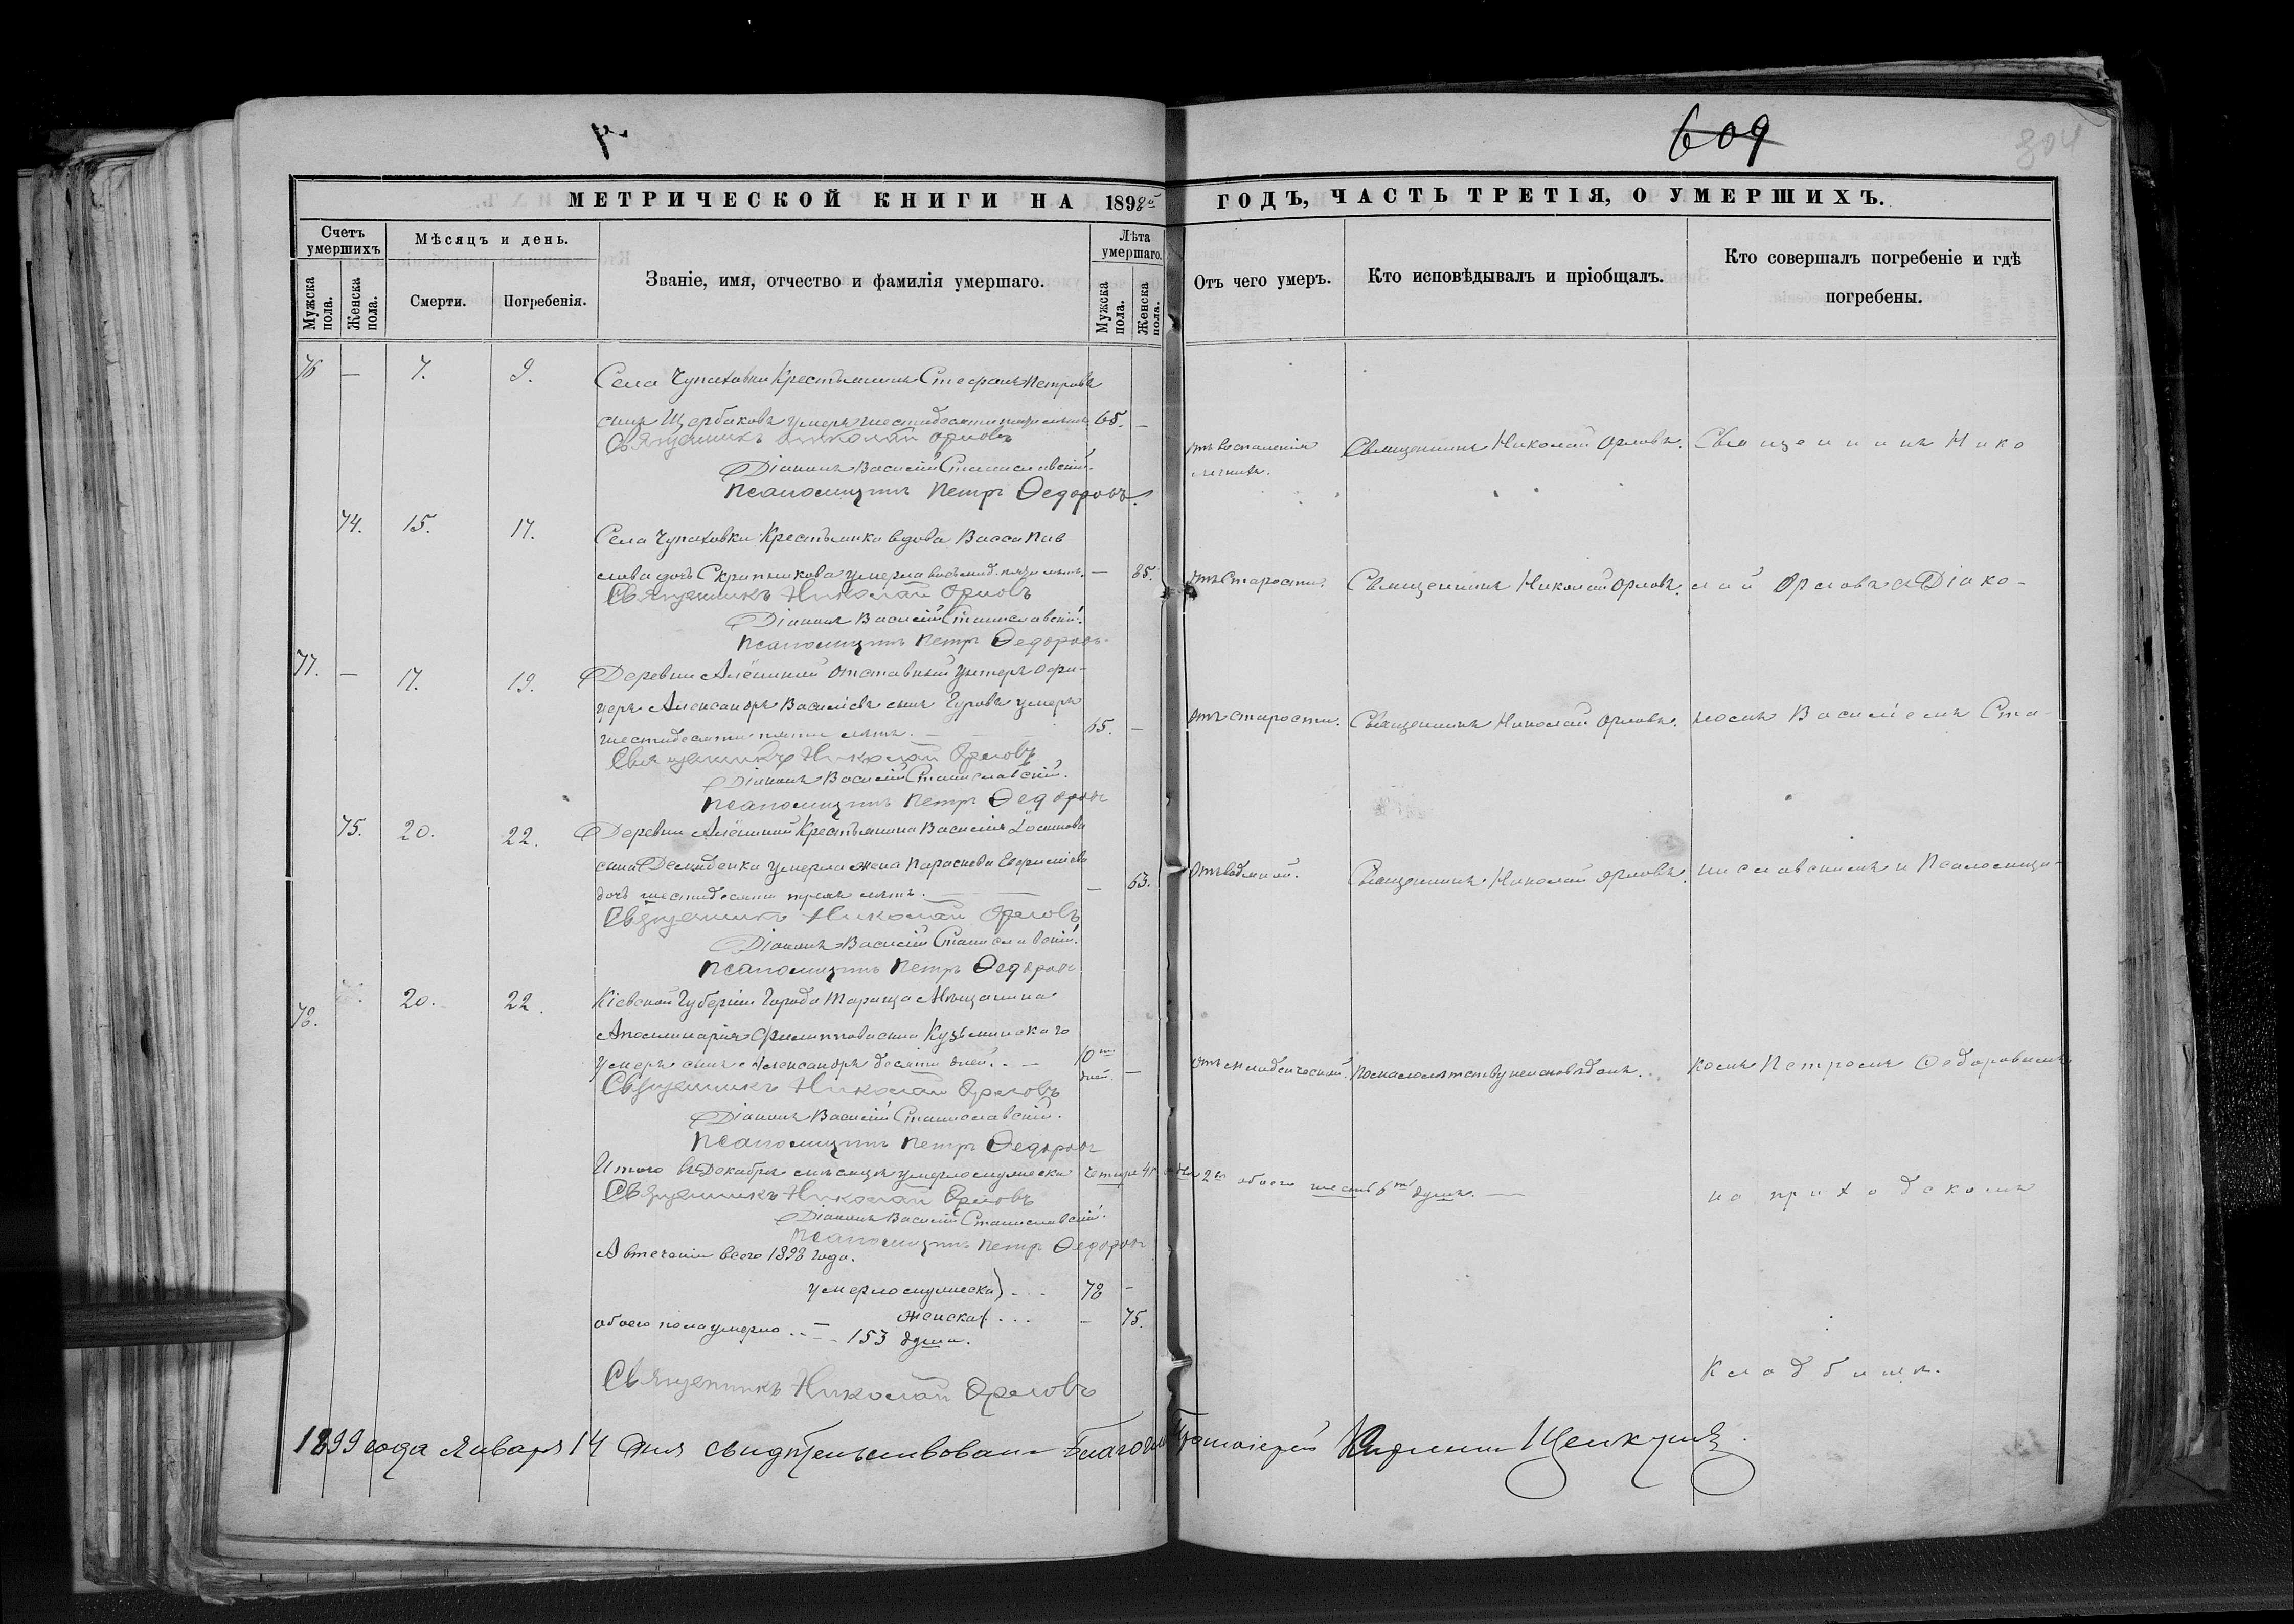 609
804
МЕТРИЧЕСКОЙ КНИГИ НА 1898й ГОДЪ, ЧАСТЬ ТРЕТІЯ, О УМЕРШИХЪ.
Счетъ умершихъ
Мѣсяцъ и день.
Званіе, имя, отчество и фамилія умершаго.
Лѣта умершаго.
Отъ чего умеръ.
Кто исповѣдывалъ и пріобщалъ.
Кто совершалъ погребеніе и гдѣ погребены.
Мужска пола.
Женска пола.
Смерти.
Погребенія.
Мужска пола.
Женска пола.
76 — 7. 9.
Села Чупаховки Крестьянинъ Стефанъ Петровъ
сынъ Щербаковъ умеръ шестидесяти пяти лѣтъ 65. —
Священникъ Николай Орловъ
Діаконъ Василій Станиславскій.
Псаломщикъ Петръ Ѳедоровъ.
отъ воспаленія
легкихъ.
Священникъ Николай Орловъ.
Священникъ Нико
74. 15. 17.
Села Чупаховки Крестьянка вдова Васса Пав
лова дочь Скрипникова умерла восьмид. пяти лѣтъ. — 85.
Священникъ Николай Орловъ
Діаконъ Василій Станиславскій.
Псаломщикъ Петръ Ѳедоровъ.
отъ Старости.
Священникъ Николай Орловъ.
лай Орловъ съ Діако-
77. — 17. 19.
Деревни Алёшиной отставный унтеръ офи-
церъ Александръ Василіевъ сынъ Гуровъ умеръ
шестидесяти пяти лѣтъ. — 65. —
Священникъ Николай Орловъ
Діаконъ Василій Станиславскій.
Псаломщикъ Петръ Ѳедоровъ
отъ старости.
Священникъ Николай Орловъ.
номъ Василіемъ Ста-
75. 20. 22.
Деревни Алёшиной Крестьянина Василія
сына Демиденка умерла жена Параскева Евфиміева
дочь шестидесяти трехъ лѣтъ. — — 63.
Священникъ Николай Орловъ
Діаконъ Василій Станиславскій.
Псаломщикъ Петръ Ѳедоровъ
Отъ водяной.
Священникъ Николай Орловъ.
ниславскимъ и Псаломщи-
78. 20. 22.
Кіевской Губерніи Города Тараща Мѣщанина
Аполлинарія Филиппова сына Кузьминскаго
умеръ сынъ Александръ десяти дней. — 10ти дней. —
Священникъ Николай Орловъ
Діаконъ Василій Станиславскій.
Псаломщикъ Петръ Ѳедоровъ
отъ младенческой.
По малолѣтству неисповѣданъ.
комъ Петромъ Ѳедоровымъ
Итого въ Декабрѣ мѣсяцѣ умерло мужеска четыре 4. 2 обоего шесть 6ть душъ. —
Священникъ Николай Орловъ
Діаконъ Василій Станиславскій.
Псаломщикъ Петръ Ѳедоровъ
на приходскомъ
А втеченіи всего 1898 года.
умерло мужеска) . . . 78 —
женска( . . . — 75.
обоего пола умерло .. — 153 души.
Священникъ Николай Орловъ
кладбищѣ.
1899 года Января 14 дня свидѣтельствовалъ Протоіерей